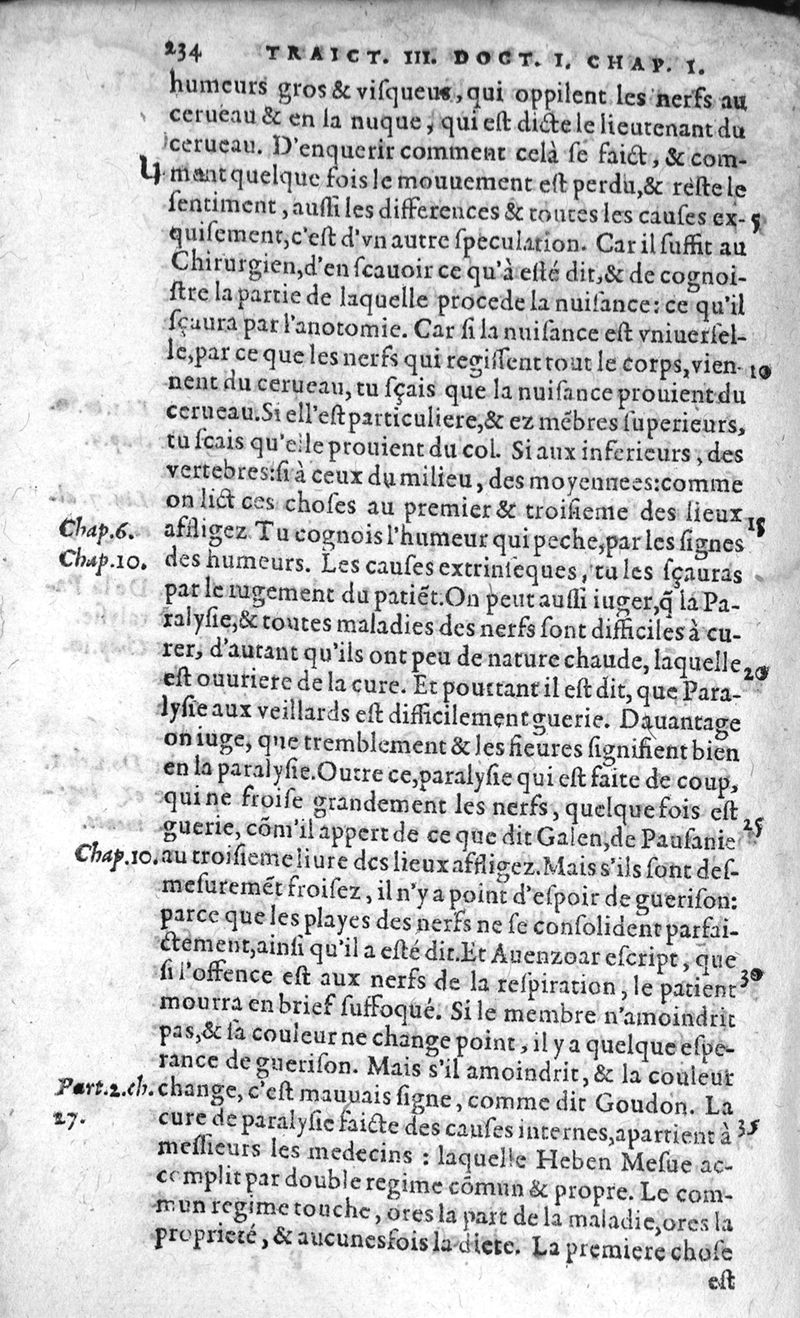 234 TRAICT. III. DOCT. I. CHAP. I.
humeurs gros & viſqueus, qui oppilent les nerfs au
cerueau & en la nuque, qui eſt dicte le lieutenant du
cerueau. D'enquerir comment celà ſe faict, & com-
mant quelque fois le mouuement eſt perdu, & reſte le
ſentiment, auſſi les differences & toutes les cauſes ex- 5
quiſement, c'eſt d'vn autre ſpeculation. Car il ſuffit au
Chirurgien, d'en ſcauoir ce qu'à eſté dit, & de cognoi-
ſtre la partie de laquelle procede la nuiſance: ce qu'il
ſçaura par l'anotomie. Car ſi la nuiſance eſt vniuerſel-
le, par ce que les nerfs qui regiſſent tout le corps, vien- 10
nent du cerueau, tu ſçais que la nuiſance prouient du
cerueau. Si ell'eſt particuliere, & ez mẽbres ſuperieurs,
tu ſcais qu'elle prouient du col. Si aux inferieurs, des
vertebres: ſi à ceux du milieu, des moyennees: comme
on lict ces choſes au premier & troiſieme des lieux 15
Chap. 6. affligez Tu cognois l'humeur qui peche, par les ſignes
Chap. 10. des humeurs. Les cauſes extrinſeques, tu les ſçauras
par le iugement du patiẽt. On peut auſſi iuger, q̃ la Pa-
ralyſie, & toutes maladies des nerfs ſont difficiles à cu-
rer, d'autant qu'ils ont peu de nature chaude, laquelle 20
eſt ouuriere de la cure. Et pourtant il eſt dit, que Para-
lyſie aux veillards eſt difficilement guerie. Dauantage
on iuge, que tremblement & les fieures ſignifient bien
en la paralyſie. Outre ce, paralyſie qui eſt faite de coup,
qui ne froiſe grandement les nerfs, quelque fois eſt
guerie, cõm'il appert de ce que dit Galen, de Pauſanie 25
Chap. 10. au troiſieme liure des lieux affligez. Mais s'ils ſont deſ-
meſuremẽt froiſez, il n'y a point d'eſpoir de gueriſon:
parce que les playes des nerfs ne ſe conſolident parfai-
ctement, ainſi qu'il a eſté dit. Et Auenzoar eſcript, que
ſi l'offence eſt aux nerfs de la reſpiration, le patient 30
mourra en brief ſuffoqué. Si le membre n'amoindrit
pas, & ſa couleur ne change point, il y a quelque eſpe-
rance de gueriſon. Mais s'il amoindrit, & la couleur
Part. 2. ch. change, c'eſt mauuais ſigne, comme dit Goudon. La
27. cure de paralyſie faicte des cauſes internes, apartient à 35
meſſieurs les medecins: laquelle Heben Meſue ac-
complit par double regime cõmun & propre. Le com-
mun regime touche, ores la part de la maladie, ores la
proprieté, & aucunesfois la diete. La premiere choſe
eſt